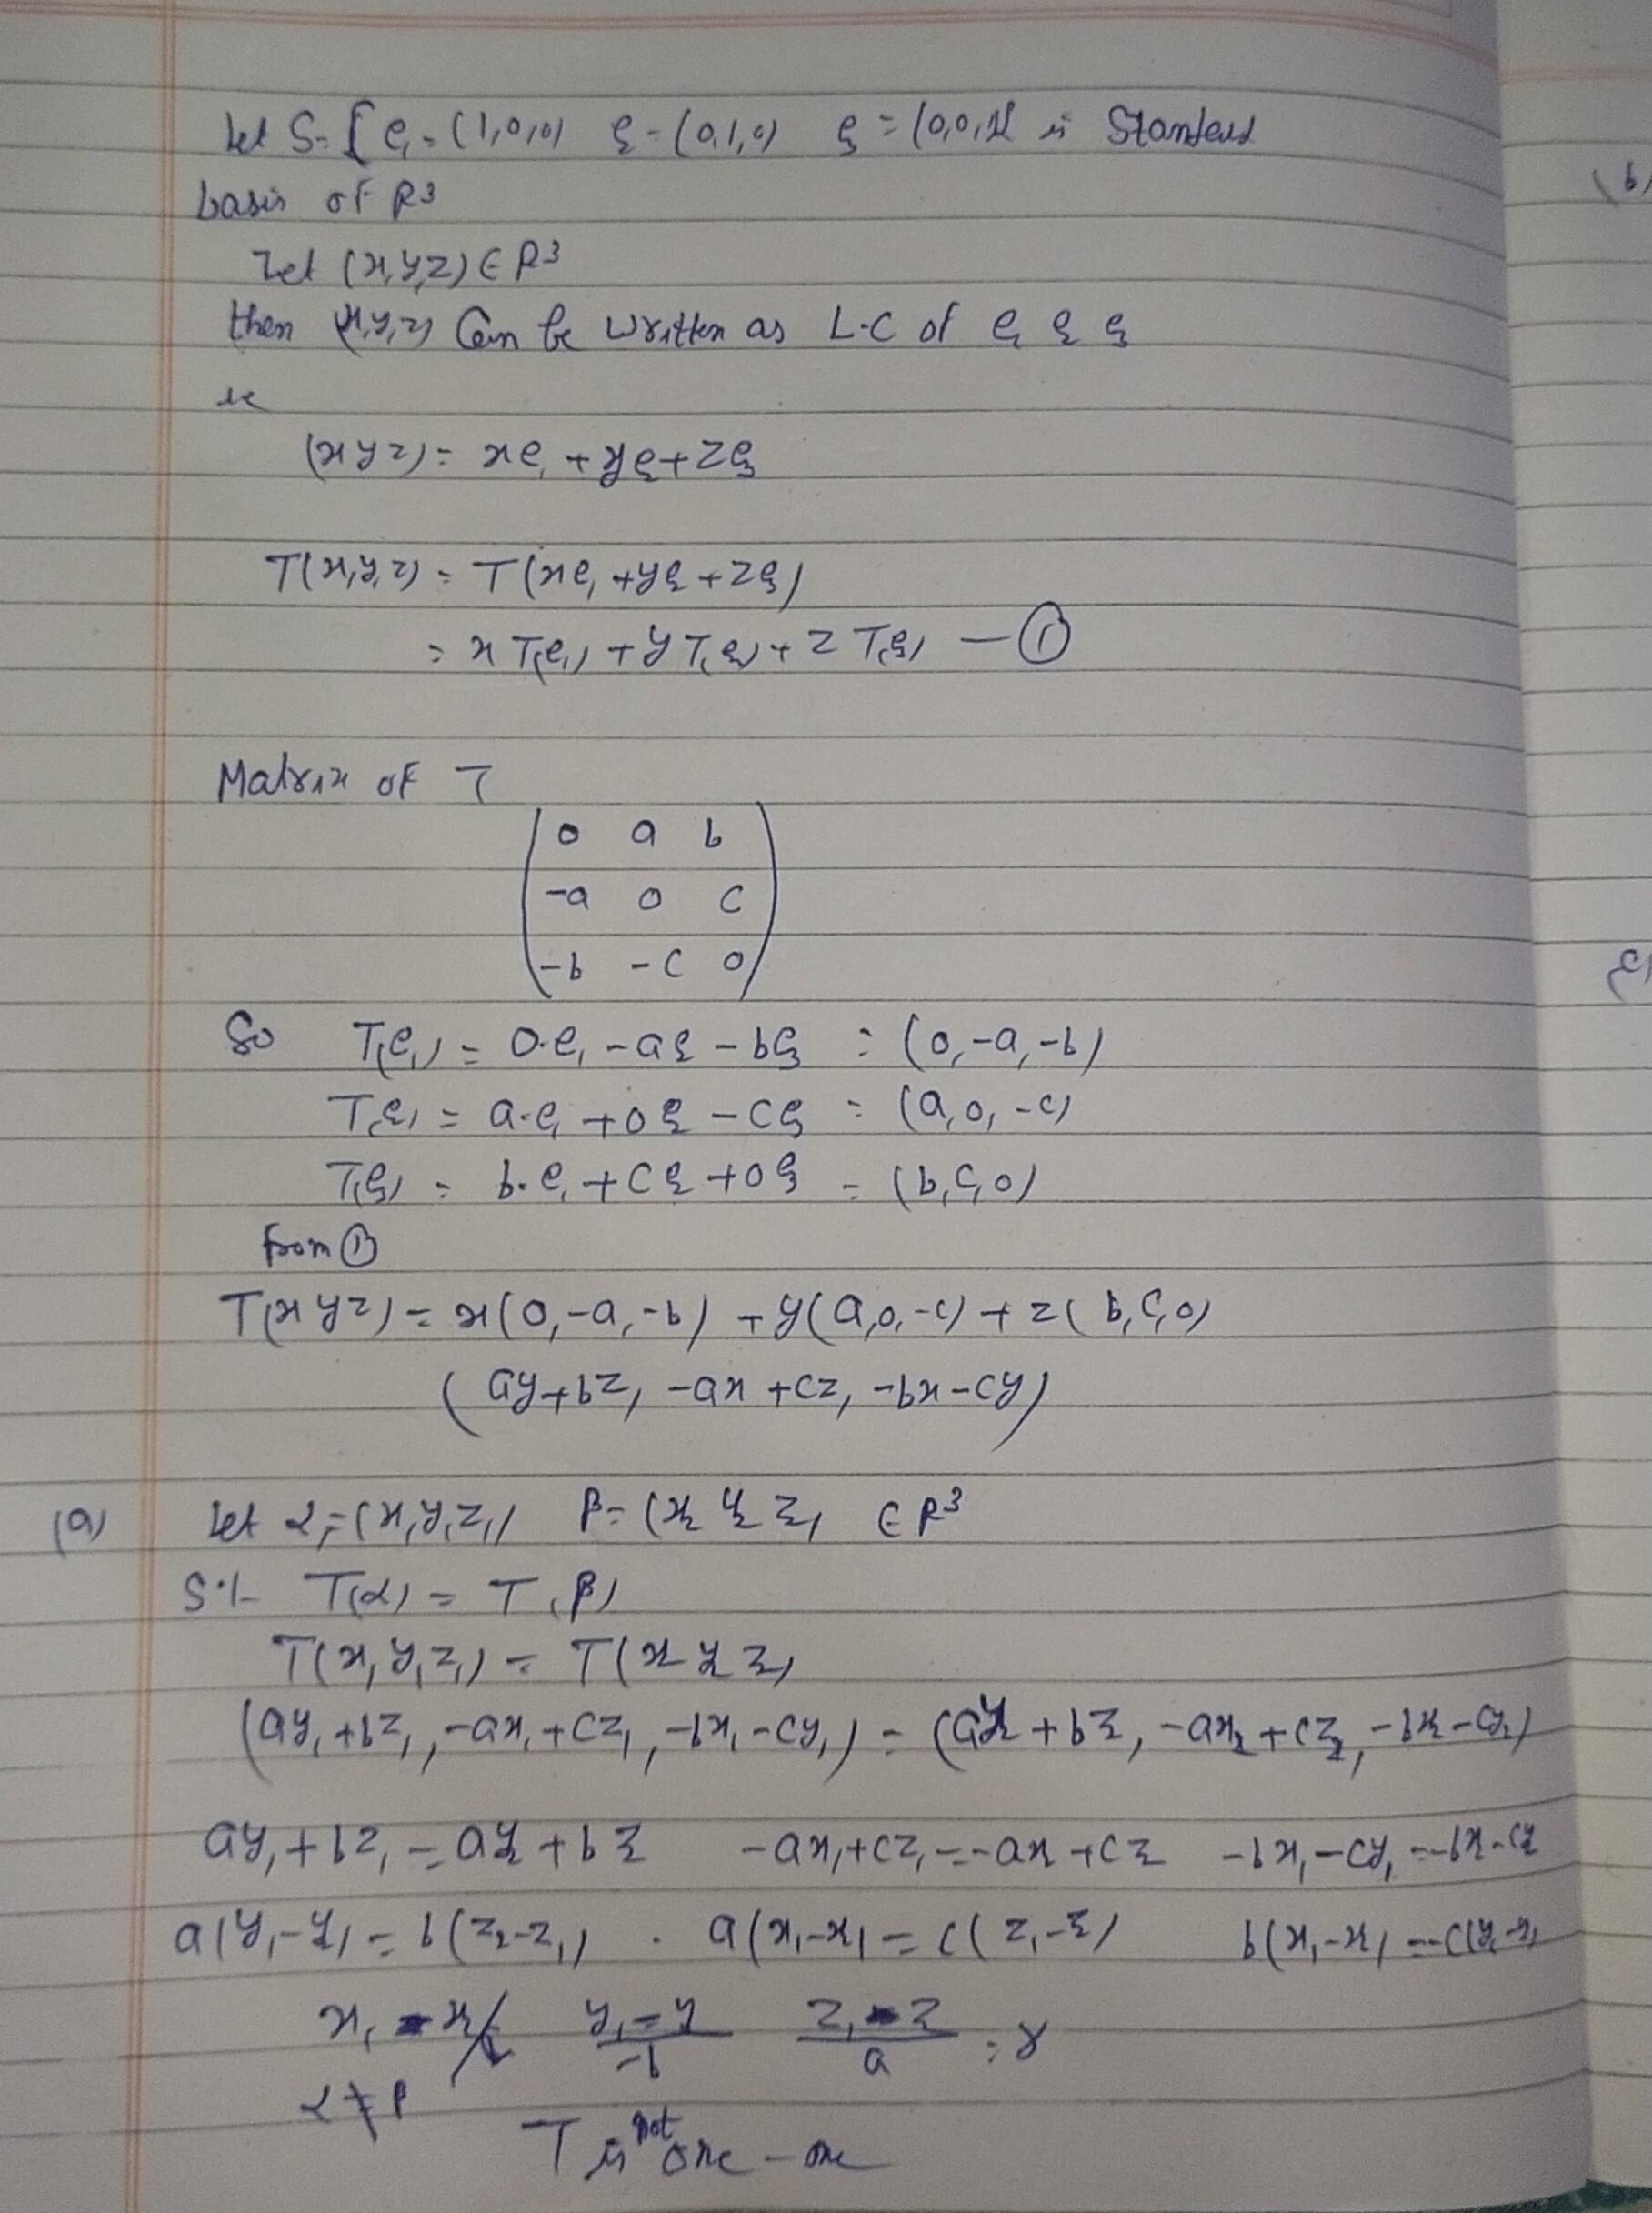 Let S = { e₁ = (1,0,0) e₂ = (0,1,0) e₃ = (0,0,1)} is Standard
basis of R³
Let (x,y,z) ∈ R³
then (x,y,z) Can be written as L.C of e₁ e₂ e₃
ie
(x y z) = xe₁ + ye₂ + ze₃
T(x,y,z) = T(xe₁ + ye₂ + ze₃)
= x T(e₁) + y T(e₂) + z T(e₃) — ①
Matrix of T
0 a b
-a 0 c
-b -c 0
So T(e₁) = 0·e₁ - ae₂ - be₃ = (0,-a,-b)
T(e₂) = a·e₁ + 0e₂ - ce₃ = (a,0,-c)
T(e₃) = b·e₁ + ce₂ + 0e₃ = (b,c,0)
from ①
T(x y z) = x(0,-a,-b) + y(a,0,-c) + z(b,c,0)
(ay+bz, -ax+cz, -bx-cy)
(a) Let α = (x₁,y₁,z₁) β = (x₂ y₂ z₂) ∈ R³
S.t T(α) = T(β)
T(x₁,y₁,z₁) = T(x₂ y₂ z₂)
(ay₁+bz₁, -ax₁+cz₁, -bx₁-cy₁) = (ay₂+bz₂, -ax₂+cz₂, -bx₂-cy₂)
ay₁+bz₁ = ay₂+bz₂ -ax₁+cz₁ = -ax₂+cz₂ -bx₁-cy₁ = -bx₂-cy₂
a(y₁-y₂) = b(z₂-z₁) . a(x₁-x₂) = c(z₁-z₂) b(x₁-x₂) = -c(y₁-y₂)
x₁-x₂/c y₁-y₂/-b z₁-z₂/a = γ
α ≠ β
T is not one-one
(b)
(c)